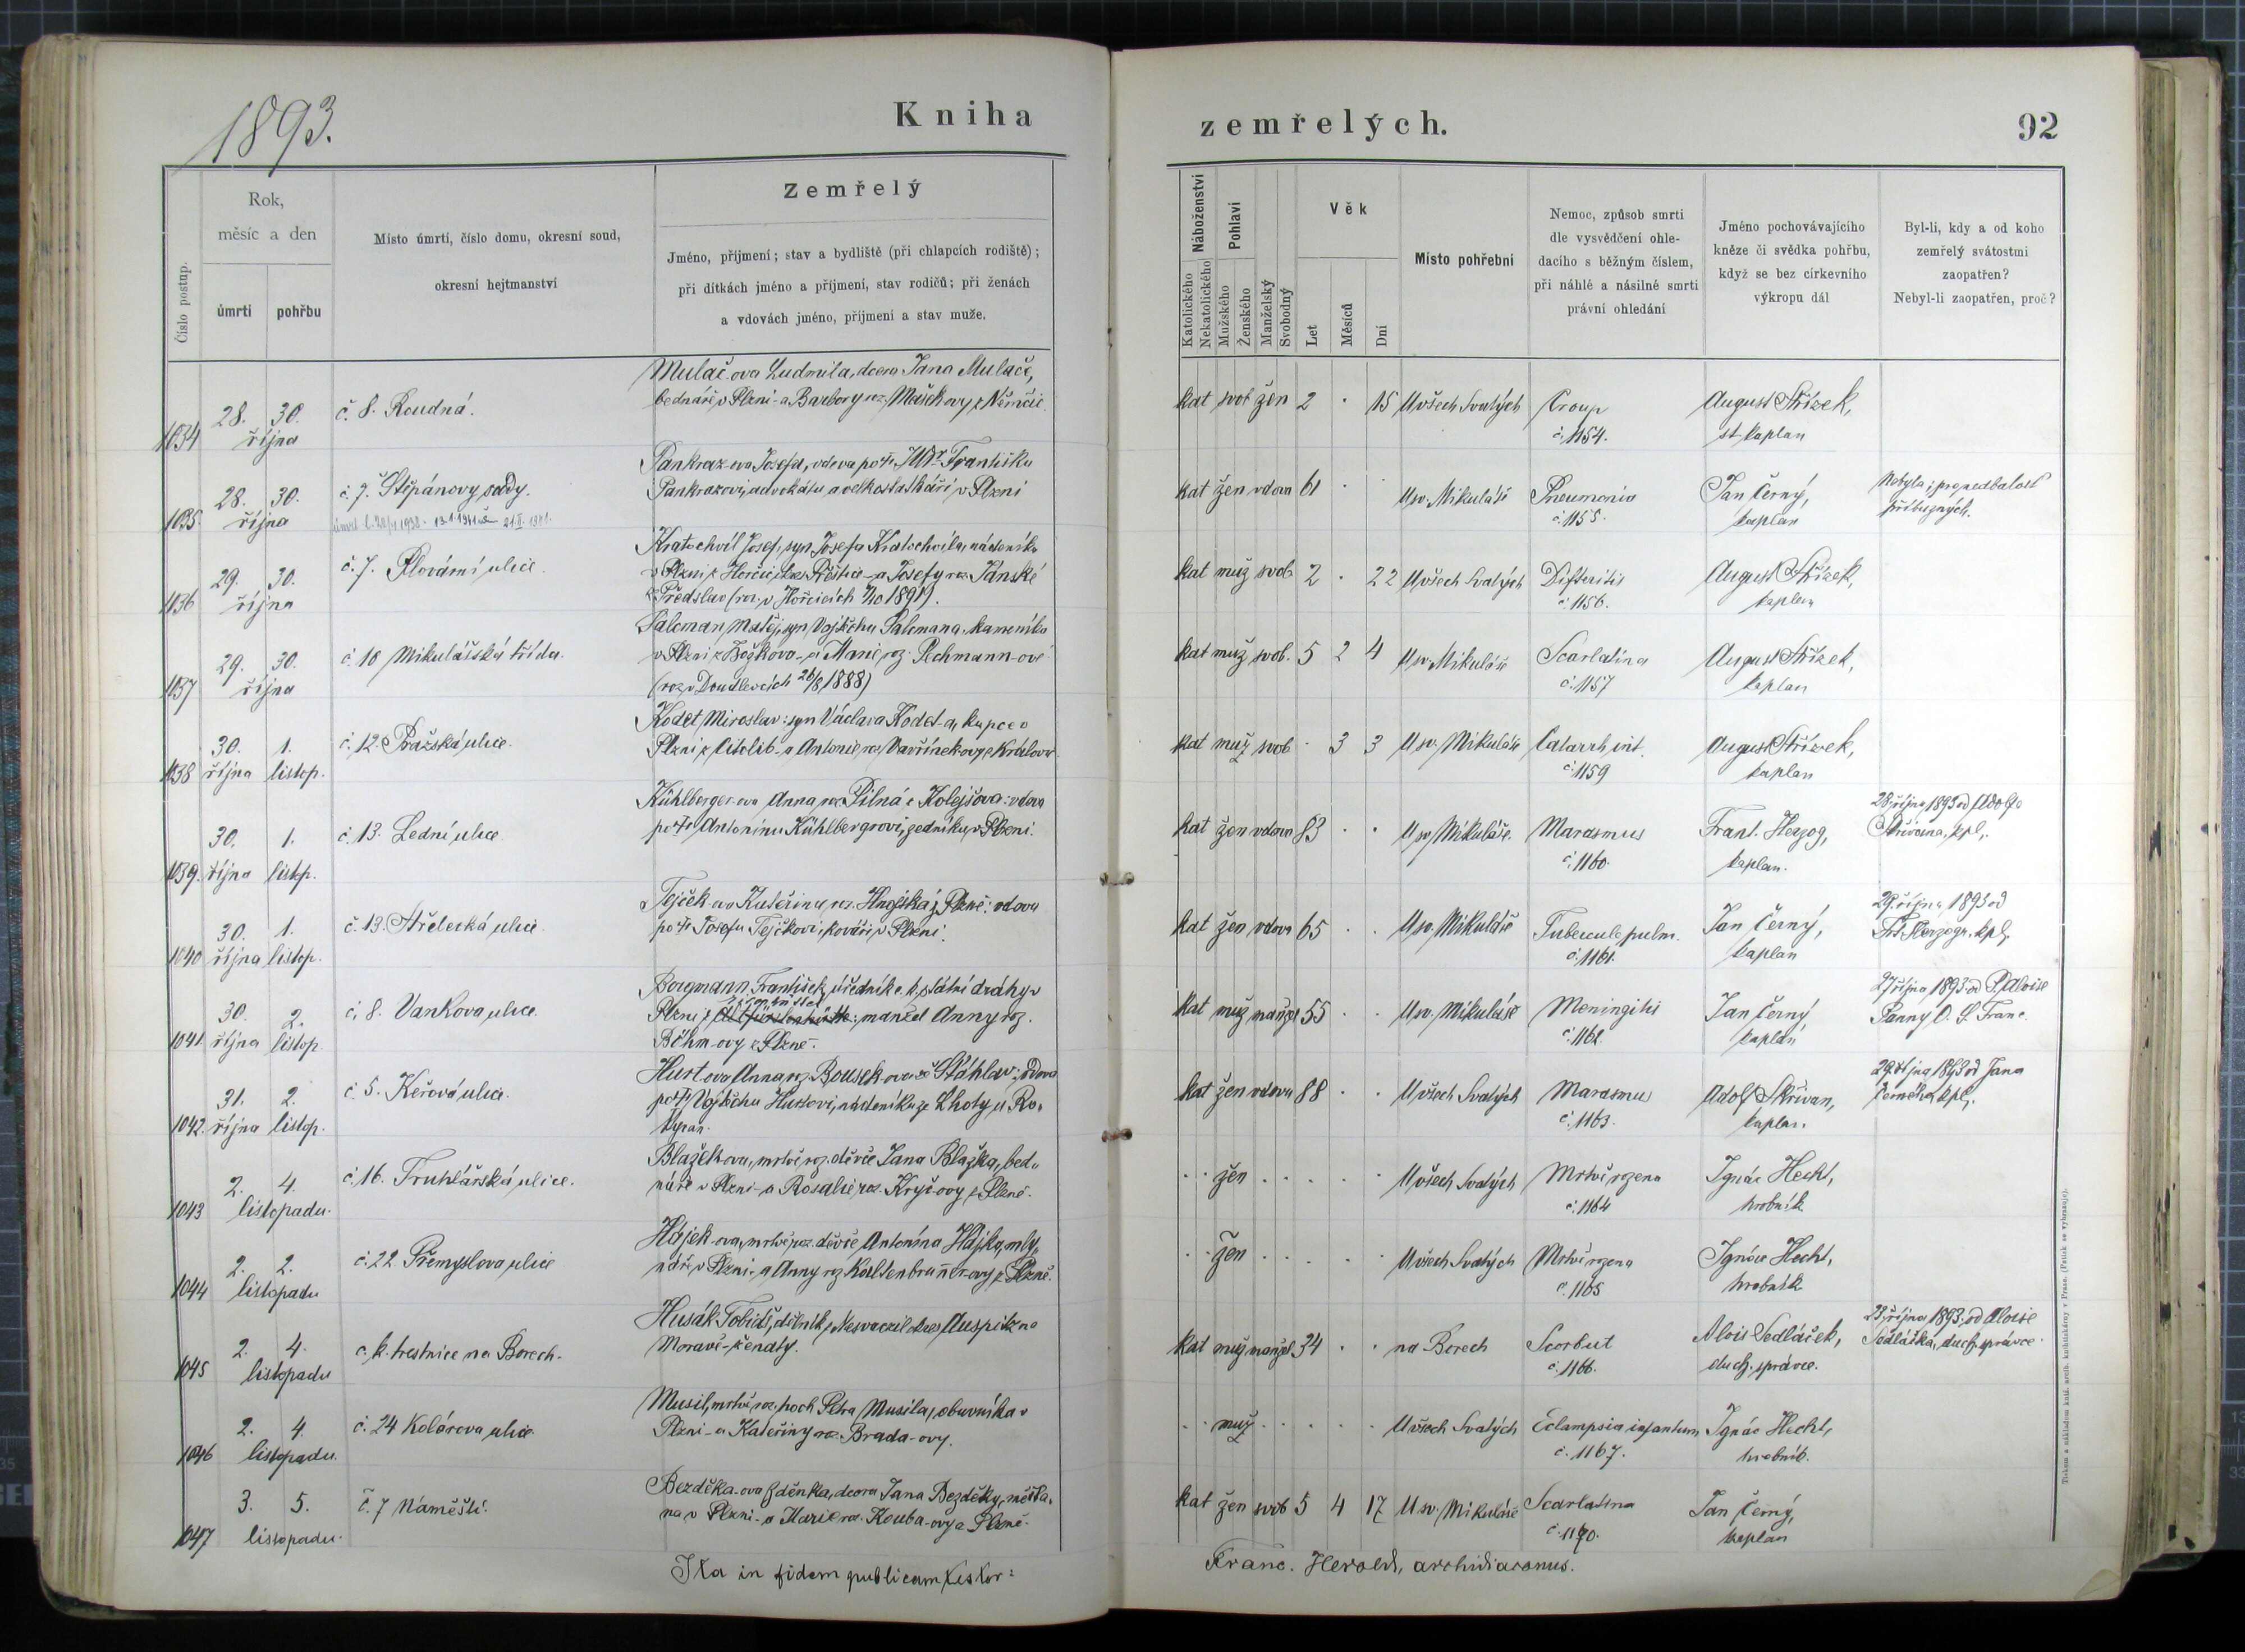 1893.
Kniha
zemřelých.
92
Číslo postup.
Rok,
měsíc a den
úmrtí
pohřbu
Místo úmrtí, číslo domu, okresní soud,
okresní hejtmanství
Zemřelý
Jméno, příjmení; stav a bydliště (při chlapcích rodiště);
při dítkách jméno a příjmení, stav rodičů; při ženách
a vdovách jméno, příjmení a stav muže.
Náboženství
Katolického
Nekatolického
Pohlaví
Mužského
Ženského
Manželský
Svobodný
Věk
Let
Měsíců
Dní
Místo pohřební
Nemoc, způsob smrti
dle vysvědčení ohle-
dacího s běžným číslem,
při náhlé a násilné smrti
právní ohledání
Jméno pochovávajícího
kněze či svědka pohřbu,
když se bez církevního
výkropu dál
Byl-li, kdy a od koho
zemřelý svátostmi
zaopatřen?
Nebyl-li zaopatřen, proč?
1034
28. 30.
října
č. 8. Roudná.
Mulač-ova Ludmila, dcera Jana Mulače,
bednáře v Plzni - a Barbory roz. Maškovy z Němčic
kat svob žen 2 · 15 U všech Svatých
Croup
č. 1154.
August Střízek,
st. kaplan
1035.
28. 30.
října
č. 7. Štěpánovy sady.
Pankraz-ova Josefa, vdova po † JUDr Františku
Pankrazovi, advokátu a velkostatkáři v Plzni
kat žen vdova 61 · U sv. Mikuláše
Pneumonia
č. 1155.
Jan Černý,
kaplan
Nebyla; pro nedbalost
příbuzných.
1036
29. 30.
října
č. 7. Plovární ulice.
Kratochvíl Josef, syn Josefa Kratochvíla, nádeníka
v Plzni z Horčic, okres Přeštice - a Josefy roz. Panské
z Předslav (roz. v Hořcicích 7/10 1891).
kat muž svob 2 · 22 U všech Svatých
Difteritis
č. 1156.
August Střízek,
kaplan
1037
29. 30.
října
č. 10 Mikulášská třída.
Salcman Matěj, syn Vojtěcha Salcmana, kameníka
v Plzni z Božkova - a Marie roz. Pechmann-ové
(roz. v Doudlevcích 26/8 1888)
kat muž svob. 5 2 4 U sv. Mikuláše
Scarlatina
č. 1157
August Střízek,
kaplan
1038
30. 1.
října listop.
č. 12. Pražská ulice.
Kodet Miroslav: syn Václava Kodet-a, kupce v
Plzni z Citolib - a Antonie roz. Vavřínekovy z Královic
kat muž svob · 3 3 U sv. Mikuláše
Catarrh int.
č. 1159
August Střízek,
kaplan
1039.
30. 1.
října listop.
č. 13. Lední ulice.
Kühlberger-ova Anna roz. Pilná z Kolejšova: vdova
po † Antonínu Kühlbergrovi, zedníku v Plzni.
kat žen vdova 83 · · U sv. Mikuláše.
Marasmus
č. 1160.
Frant. Herzog,
kaplan.
28. října 1893 od Adolfa
Skřivana, kpl.
1040
30. 1.
října listop.
č. 13. Střelecká ulice.
Tejček-ova Kateřina roz. Hnojská z Plzně: vdova
po † Josefu Tejčkovi, kováři v Plzni.
kat žen vdova 65 · · U sv. Mikuláše
Tubercule pulm.
č. 1161.
Jan Černý,
kaplan
29. října 1893 od
Frt. Herzoga, kpl.
1041
30. 2.
října listop.
č. 8. Vankova ulice.
Borgmann František, úředník c. k. státní dráhy v
Plzni z : manžel Anny roz.
Böhm-ovy z Plzně.
kat muž manžel 55 · · U sv. Mikuláše
Meningitis
č. 1162
Jan Černý,
kaplan
27 října 1893 od P. Aloise
Panny O. S. Franc.
1042.
31. 2.
října listop.
č. 5. Keřová ulice.
Hurt-ova Anna roz. Bousek-ova ze Šťáhlav: vdova
po † Vojtěchu Hurtovi, nádeníku ze Lhoty u Ro-
kycan.
kat žen vdova 88 · · U všech Svatých
Marasmus
č. 1163.
Adolf Skřivan,
kaplan.
29. října 1893 od Jana
Černého kpl.
1043
2. 4.
listopadu.
č. 16. Truhlářská ulice.
Blažek-ova, mrtvě roz. děvče Jana Blažka, bed-
náře v Plzni - a Rosalie roz. Kryšovy z Plzně.
žen U všech Svatých
Mrtvě rozena
č. 1164
Ignác Hecht,
hrobník
1044
2. 2.
listopadu
č. 22. Přemyslova ulice
Hájek-ova, mrtvě roz. děvče Antonína Hájka, mly-
náře v Plzni - a Anny roz. Kaltenbrunnerovy z Plzně.
žen U všech Svatých
Mrtvě rozena
č. 1165
Ignác Hecht,
hrobník
1045
2. 4.
listopadu
c. k. trestnice na Borech.
Husák Tobiáš, dělník, okres Auspitz na
Moravě - ženatý.
kat muž manžel 34 · · na Borech
Scorbut
č. 1166.
Alois Sedláček,
duch. správce.
23. října 1893 od Aloise
Sedláčka, duch. správce.
1046
2. 4.
listopadu.
č. 24 Kolárova ulice.
Musil, mrtvě roz. hoch Petra Musila, obuvníka v
Plzni - a Kateřiny roz. Brada-ovy.
muž U všech Svatých
Eclampsia infantum
č. 1167.
Ignác Hecht,
hrobník.
1047
3. 5.
listopadu.
č. 7 Náměstí.
Bezděka-ova Zděnka, dcera Jana Bezděky, měšťa-
na v Plzni - a Marie roz. Kouba-ovy z Plzně.
kat žen svob 5 4 17 U sv. Mikuláše
Scarlatina
č. 1170.
Jan Černý,
kaplan
Ita in fidem publicam testor:
Franc. Herold, archidiaconus.